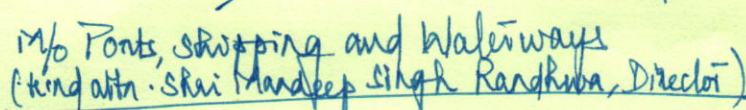 M/o Ports, Shipping and Waterways
(Kind attn. Shri Mandeep Singh Randhwa, Director)